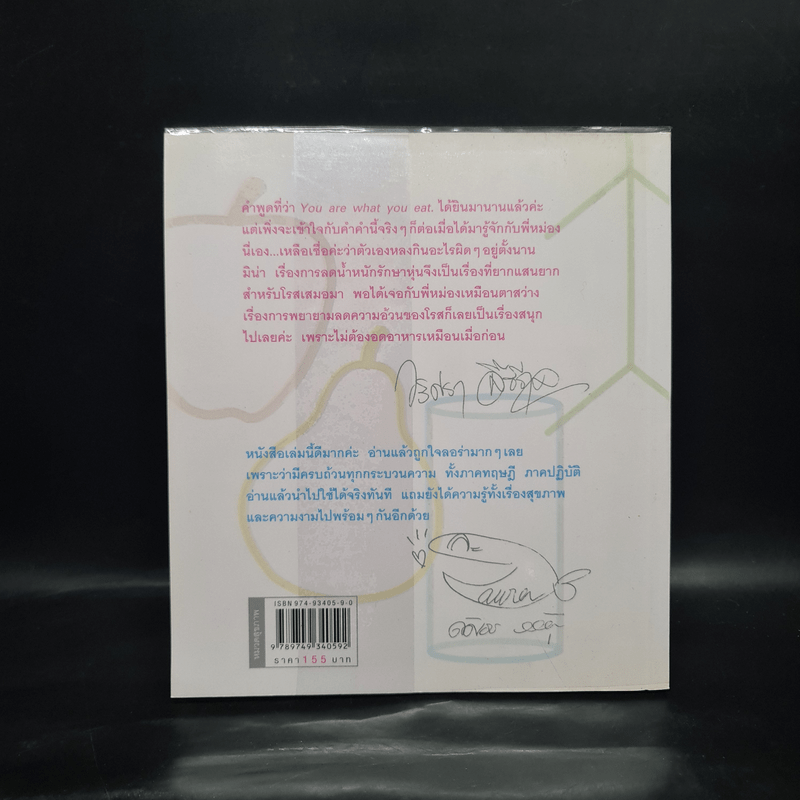 คำพูดที่ว่า You are what you eat. ได้ยินมานานแล้วค่ะ
แต่เพิ่งจะเข้าใจกับคำคำนี้จริงๆ ก็ต่อเมื่อได้มารู้จักกับพี่หม่อง
นี่เอง...เหลือเชื่อค่ะว่าตัวเองหลงกินอะไรผิดๆ อยู่ตั้งนาน
มิน่า เรื่องการลดน้ำหนักรักษาหุ่นจึงเป็นเรื่องที่ยากแสนยาก
สำหรับโรสเสมอมา พอได้เจอกับพี่หม่องเหมือนตาสว่าง
เรื่องการพยายามลดความอ้วนของโรสก็เลยเป็นเรื่องสนุก
ไปเลยค่ะ เพราะไม่ต้องอดอาหารเหมือนเมื่อก่อน
หนังสือเล่มนี้ดีมากค่ะ อ่านแล้วถูกใจลอร่ามากๆ เลย
เพราะว่ามีครบถ้วนทุกกระบวนความ ทั้งภาคทฤษฎี ภาคปฏิบัติ
อ่านแล้วนำไปใช้ได้จริงทันที แถมยังได้ความรู้ทั้งเรื่องสุขภาพ
และความงามไปพร้อมๆ กันอีกด้วย
หมวดสุขภาพ
ISBN 974-93405-9-0
9 789749 340592
ราคา 155 บาท